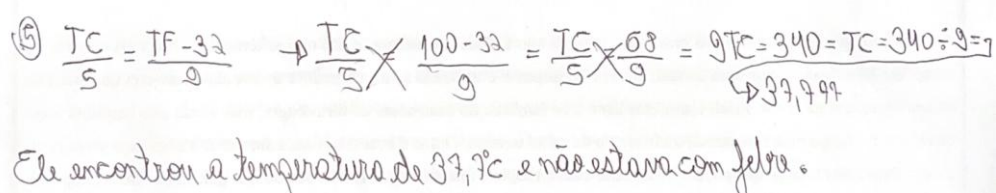 ⑤ TC/5 = TF-32/9 → TC/5 × 100-32/9 = TC/5 × 68/9 9TC = 340 = TC = 340÷9 =
↳ 37,777
Ele encontrou a temperatura de 37,7°C e não estava com febre.